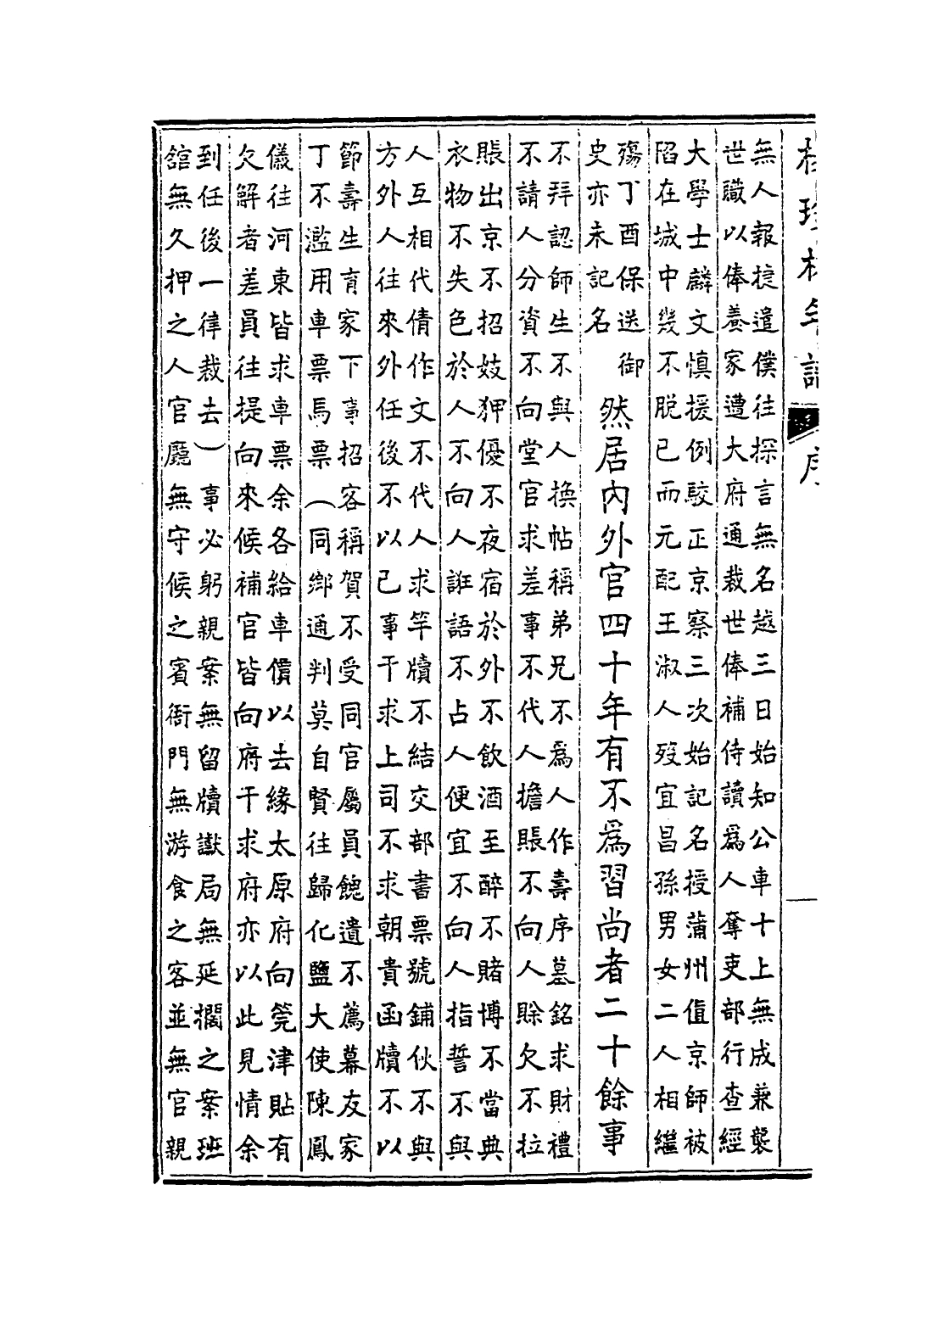 珍林年譜　序　一
無人報捷遣僕往探言無名越三日始知公車十上無成兼襲
世職以俸養家遭大府通裁世俸補侍讀爲人奪吏部行查經
大學士麟文慎援例駮正京察三次始記名授蒲州值京師被
陷在城中幾不脫已而元配王淑人歿宜昌孫男女二人相繼
殤丁酉保送　御
史亦未記名
然居內外官四十年有不爲習尚者二十餘事
不拜認師生不與人換帖稱弟兄不爲人作壽序墓銘求財禮
不請人分資不向堂官求差事不代人擔賬不向人賒欠不拉
賬出京不招妓狎優不夜宿於外不飲酒至醉不賭博不當典
衣物不失色於人不向人誑語不占人便宜不向人指誓不與
人互相代倩作文不代人求竿牘不結交部書票號鋪伙不與
方外人往來外任後不以己事干求上司不求朝貴函牘不以
節壽生育家下事招客稱賀不受同官屬員餽遺不薦幕友家
丁不濫用車票馬票（同鄉通判莫自賢往歸化鹽大使陳鳳
儀往河東皆求車票余各給車價以去緣太原府向筦津貼有
欠解者差員往提向來候補官皆向府干求府亦以此見情余
到任後一律裁去）事必躬親案無留牘讞局無延擱之案班
舘無久押之人官廳無守候之賓衙門無游食之客並無官親